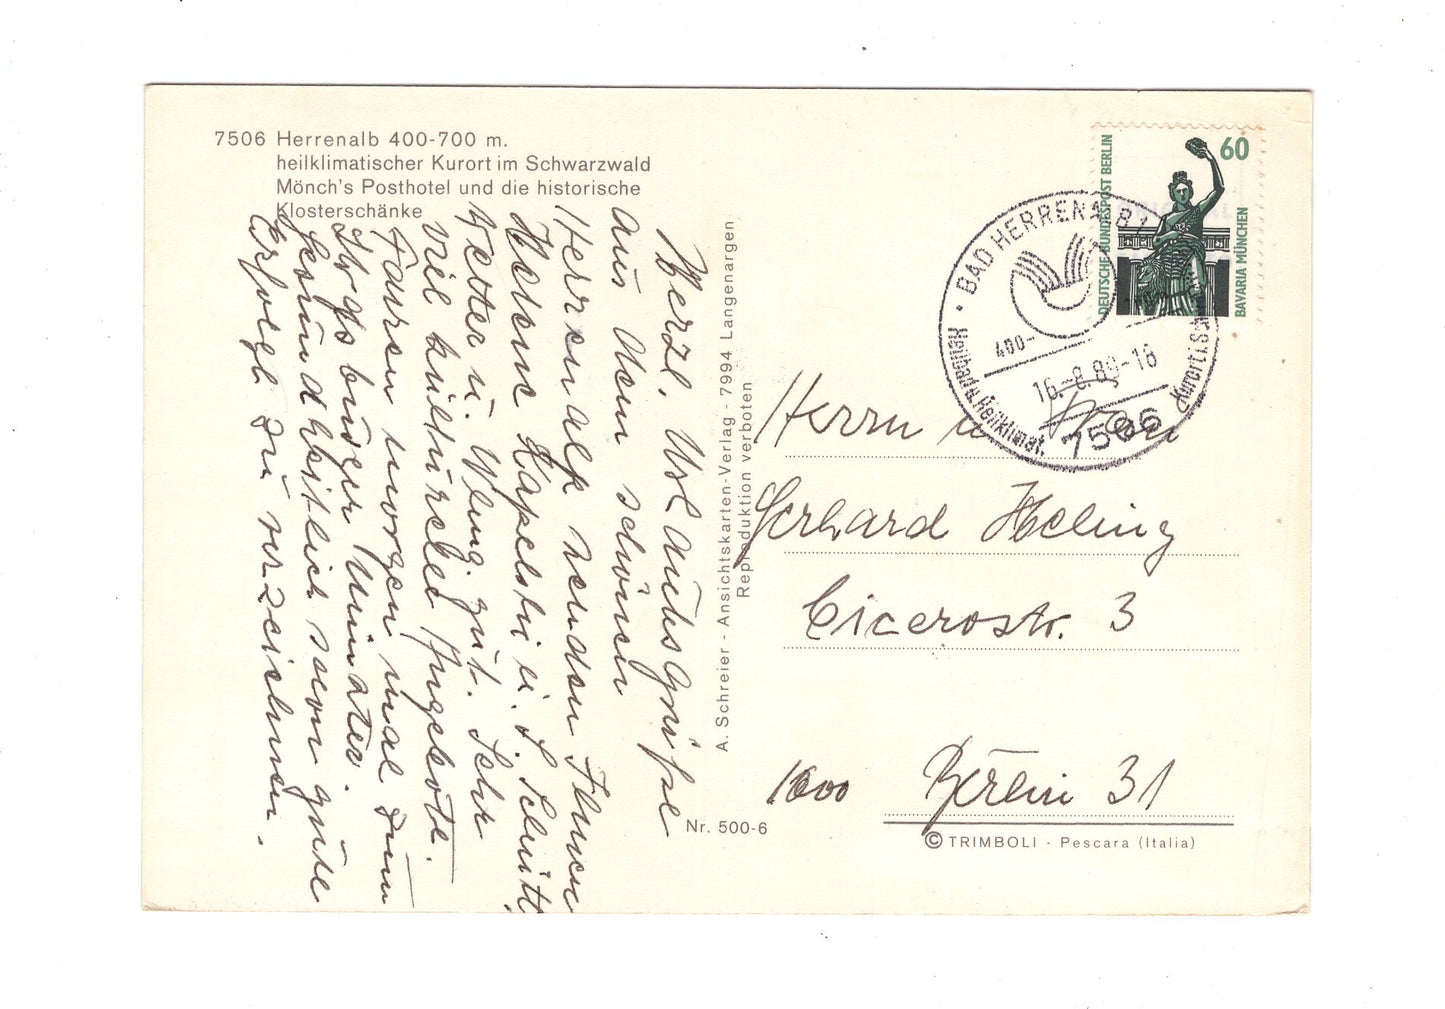 7506 Herrenalb 400-700 m.
heilklimatischer Kurort im Schwarzwald
Mönch's Posthotel und die historische
Klosterschänke
Herzl. Urlaubsgrüße
aus dem schönen
Herrenalb senden Ihnen
Helene Kapelski u. S. Schütt
Wetter u. Wbng. gut. Sehr
viel kulturelle Angebote.
Fahren morgen mal zum
Gesundheitlich schon gute
Erfolge zu verzeichnen.
A. Schreier - Ansichtskarten-Verlag - 7994 Langenargen
Reproduktion verboten
Nr. 500-6
DEUTSCHE BUNDESPOST BERLIN
60
BAVARIA MÜNCHEN
BAD HERRENALB
Heilbad u. Heilklimat. Kurort i. Schw
400-
16.-8.89-18
7506
Herrn u Frau
Gerhard Heling
Cicerostr. 3
1000 Berlin 31
© TRIMBOLI - Pescara (Italia)